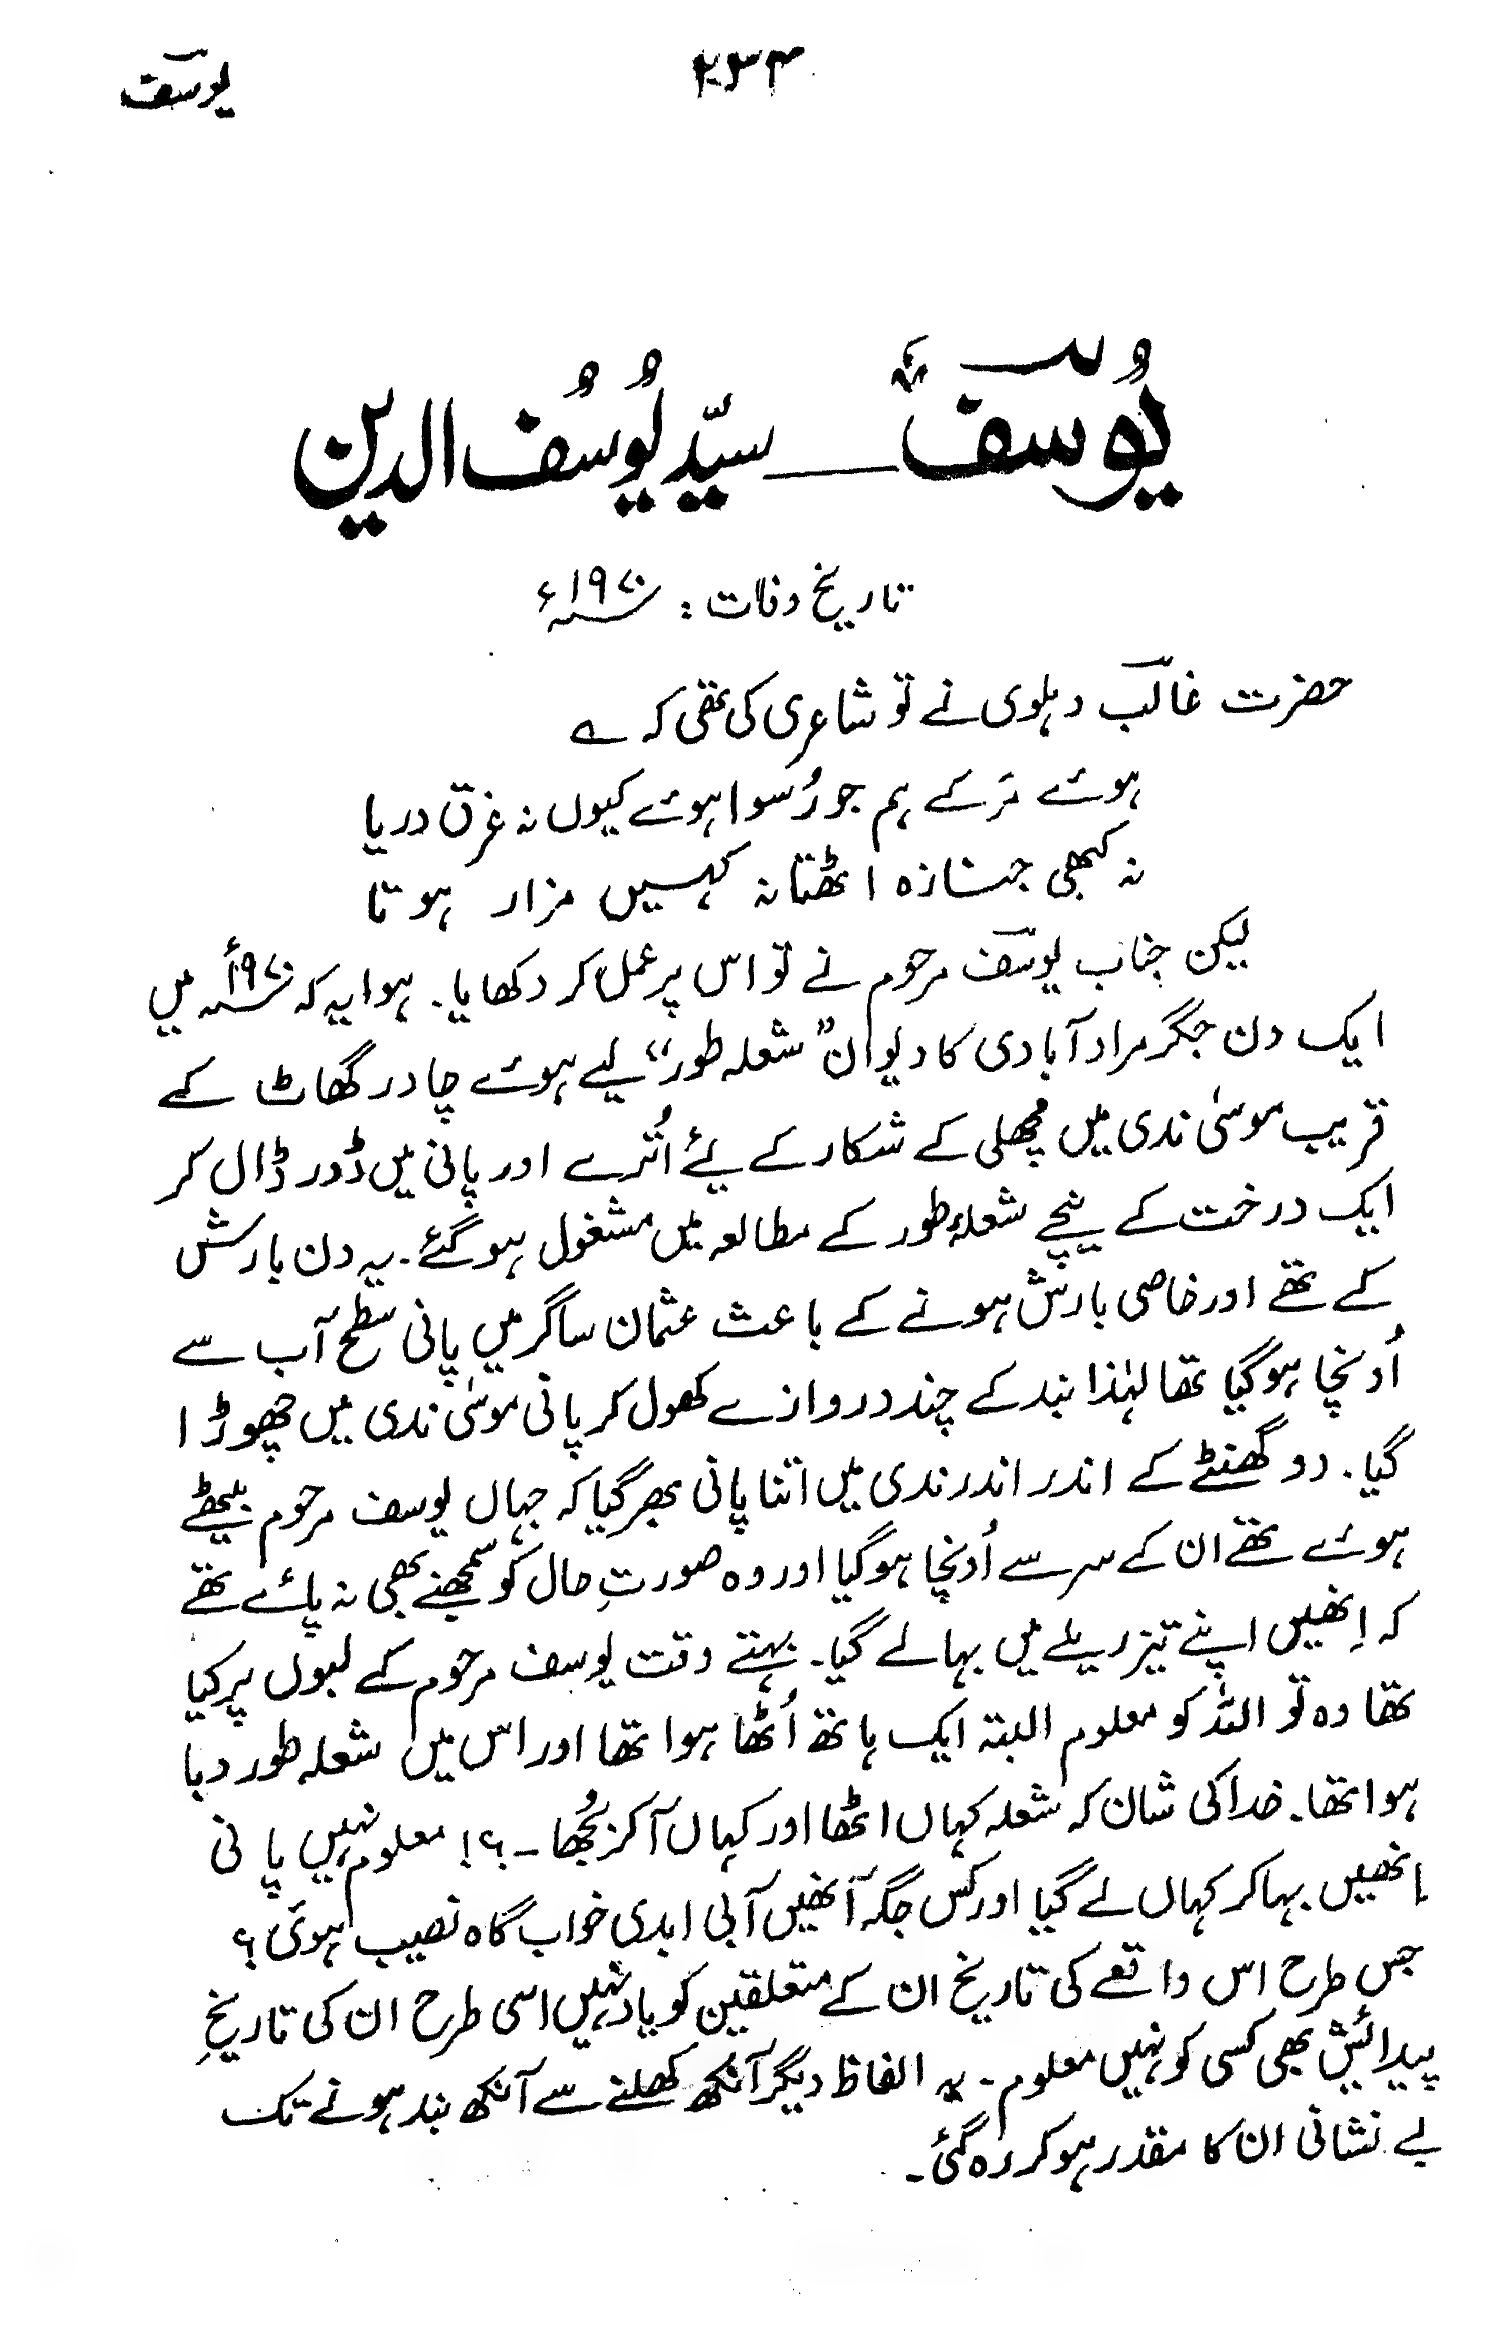 یوسفؔ
۲۳۴
یُوسفؔؒ — سیّد یُوسُف الدین
تاریخ وفات : ۱۹۷۰ء
حضرت غالبؔ دہلوی نے تو شاعری کی تھی کہ ؎
ہوئے مَر کے ہم جو رُسوا ہوئے کیوں نہ غرق دریا
نہ کبھی جنازہ اٹھتا نہ کہیں مزار ہوتا
لیکن جناب یوسفؔ مرحوم نے تو اس پر عمل کر دکھایا۔ ہوا یہ کہ ۱۹۷۰ء میں
ایک دن جگر مراد آبادی کا دیوان "شعلہ طور" لیے ہوئے چادر گھاٹ کے
قریب موسیٰ ندی میں مچھلی کے شکار کے لیے اُترے اور پانی میں ڈور ڈال کر
ایک درخت کے نیچے شعلۂ طور کے مطالعہ میں مشغول ہو گئے۔ یہ دن بارش
کے تھے اور خاصی بارش ہونے کے باعث عثمان ساگر میں پانی سطح آب سے
اُونچا ہو گیا تھا لہٰذا بند کے چند دروازے کھول کر پانی موسیٰ ندی میں چھوڑا
گیا۔ دو گھنٹے کے اندر اندر ندی میں اتنا پانی بھر گیا کہ جہاں یوسف مرحوم بیٹھے
ہوئے تھے ان کے سر سے اُونچا ہو گیا اور وہ صورتِ حال کو سمجھنے بھی نہ پائے تھے
کہ اِنھیں اپنے تیز ریلے میں بہا لے گیا۔ بہتے وقت یوسف مرحوم کے لبوں پر کیا
تھا وہ تو اللہ کو معلوم البتہ ایک ہاتھ اُٹھا ہوا تھا اور اس میں شعلہ طور دبا
ہوا تھا۔ خدا کی شان کہ شعلہ کہاں اٹھا اور کہاں آ کر بُجھا ۔؟! معلوم نہیں پانی
اِنھیں بہا کر کہاں لے گیا اور کس جگہ اُنھیں آبی ابدی خواب گاہ نصیب ہوئی؟
جس طرح اس واقعے کی تاریخ ان کے متعلقین کو یاد نہیں اسی طرح ان کی تاریخِ
پیدائش بھی کسی کو نہیں معلوم۔ بہ الفاظ دیگر آنکھ کھلنے سے آنکھ بند ہونے تک
بے نشانی ان کا مقدر ہو کر رہ گئی۔